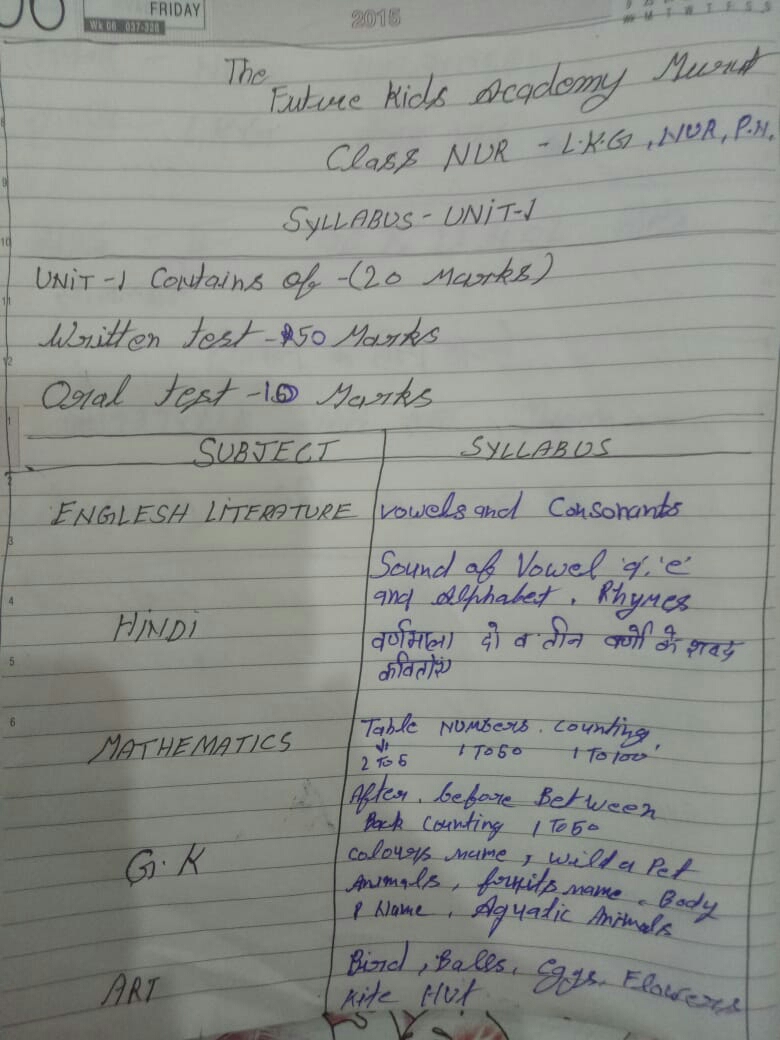 FRIDAY
Wk 06 037-328
2015
The
Future Kids Academy
Class NUR - L.K.G, NUR, P.N.
SYLLABUS - UNIT-1
UNIT-1 Contains of -(20 Marks)
Written test - 50 Marks
Oral test - Marks
SUBJECT SYLLABUS
ENGLESH LITERATURE vowels and Consonants
Sound of Vowel 'a', 'e'
and Alphabet, Rhymes
HINDI
वर्णमाला दो व तीन वर्णो के शब्द
कविताएं
MATHEMATICS Table NUMBERS. Counting,
2 To 5 1 To 50 1 To 100
After. before Between
Back Counting 1 To 50
G.K colours name, wild a Pet
Animals, fruits name. Body
P Name, Aquatic Animals
ART Bird, Balls, eggs, Flowers
Kite Hut